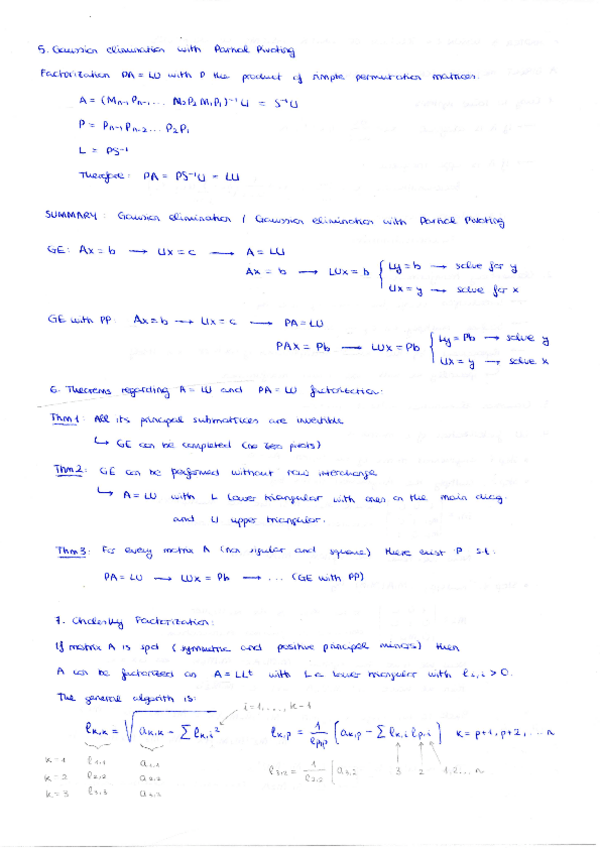 5. Gaussian elimination with Partial Pivoting
Factorization PA = LU with P the product of simple permutation matrices.
A = (Mn-1 Pn-1 ... M2 P2 M1 P1)⁻¹ U = S⁻¹U
P = Pn-1 Pn-2 ... P2 P1
L = PS⁻¹
Therefore: PA = PS⁻¹U = LU
SUMMARY: Gaussian elimination / Gaussian elimination with Partial Pivoting
GE: Ax = b → Ux = c → A = LU
Ax = b → LUx = b { Ly = b → solve for y
Ux = y → solve for x
GE with PP: Ax = b → Ux = c → PA = LU
PAx = Pb → LUx = Pb { Ly = Pb → solve y
Ux = y → solve x
6. Theorems regarding A = LU and PA = LU
Thm 1: All its principal submatrices are invertible
↳ GE can be completed (no zero pivots)
Thm 2: GE can be performed without row interchange
↳ A = LU with L lower triangular with ones on the main diag.
and U upper triangular.
Thm 3: For every matrix A (non singular and square) there exist P s.t.
PA = LU → LUx = Pb → ... (GE with PP)
7. Cholesky Factorization:
If matrix A is spd (symmetric and positive principal minors) then
A can be factorized as A = LLᵗ with L a lower triangular with ℓi,i > 0.
The general algorithm is:
i = 1, ..., k-1
ℓk,k = √(ak,k - Σ ℓk,i²) ℓk,p = 1/ℓp,p [ak,p - Σ ℓk,i ℓp,i] k = p+1, p+2, ... n
k = 1 ℓ1,1 a1,1
k = 2 ℓ2,2 a2,2
k = 3
ℓ3,2 = 1/ℓ2,2 [a3,2 3 2 1,2,... n